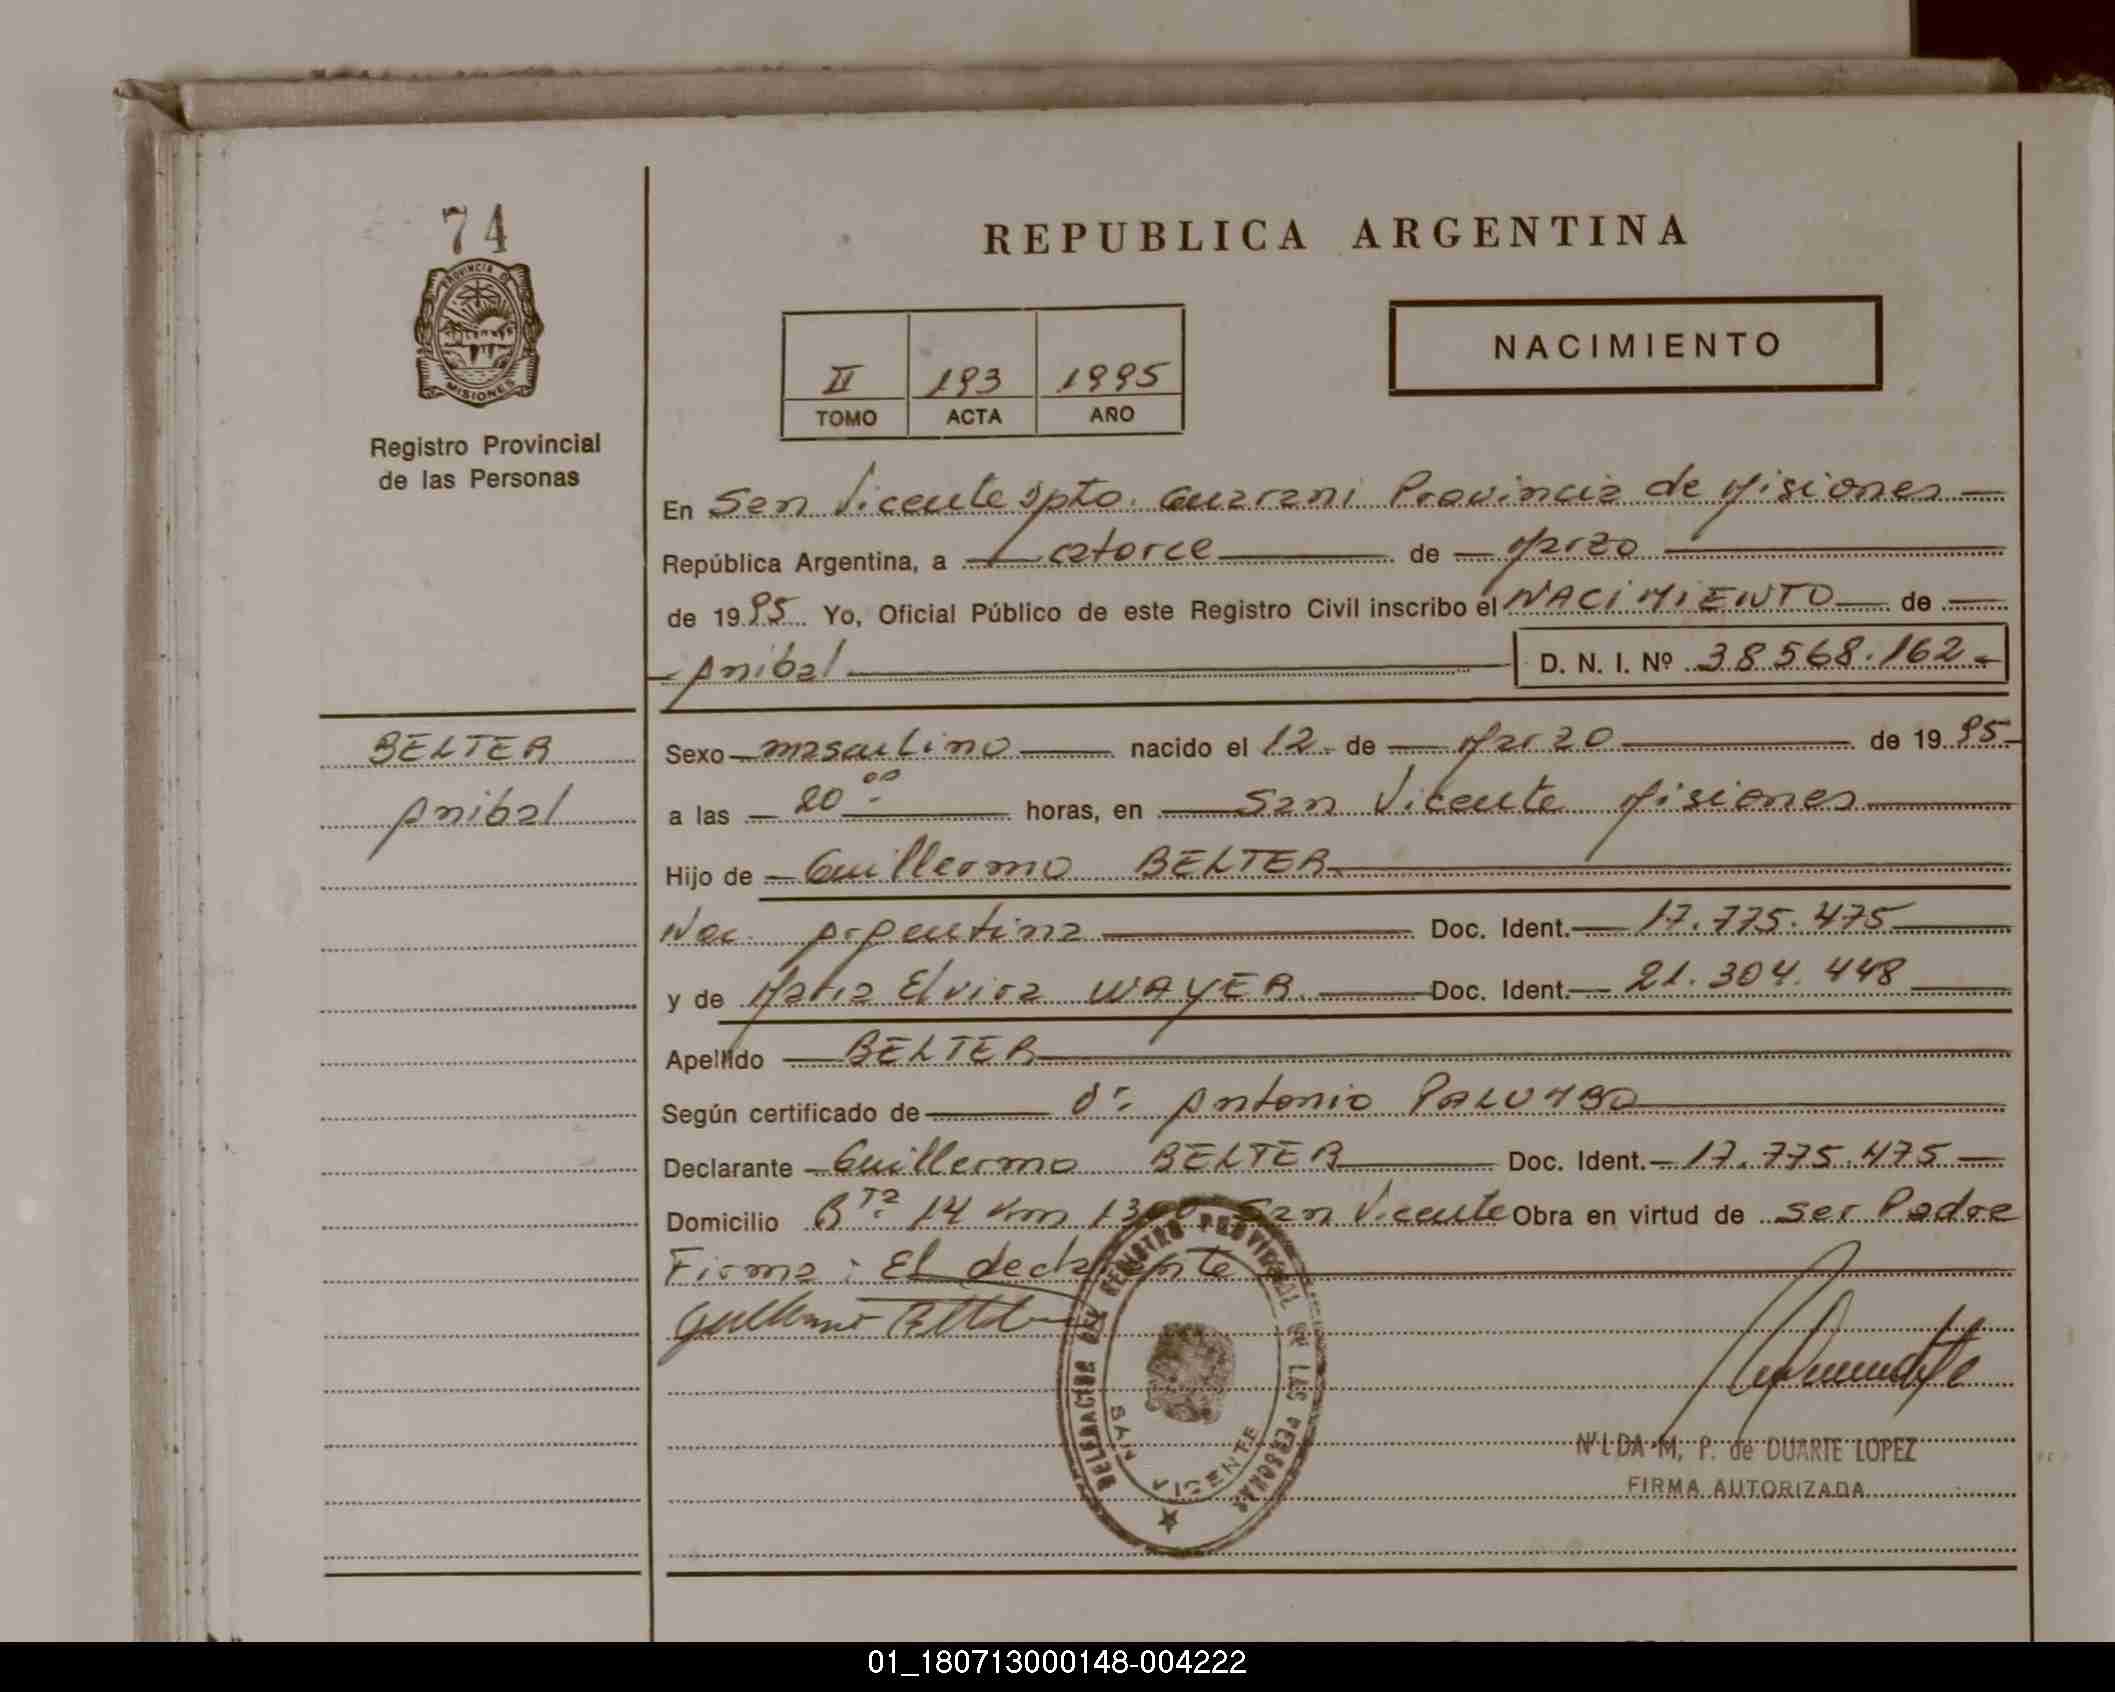 74
PROVINCIA DE
MISIONES
Registro Provincial
de las Personas
REPUBLICA ARGENTINA
II 193 1995
TOMO ACTA AÑO
NACIMIENTO
En San Vicente Dpto. Guarani Provincia de Misiones
República Argentina, a catorce de Marzo
de 1995 Yo, Oficial Público de este Registro Civil inscribo el NACIMIENTO de
Anibal D. N. I. Nº 38568.162.-
BELTER
Anibal
Sexo masculino nacido el 12 de Marzo de 1995.
a las 20 00 horas, en San Vicente Misiones
Hijo de Guillermo BELTER
Nac. Argentina Doc. Ident. 17.775.475
y de Maria Elvira WAYER Doc. Ident. 21.304.448
Apellido BELTER
Según certificado de Dr. Antonio PALUMBO
Declarante Guillermo BELTER Doc. Ident. 17.775.475
Domicilio Rta 14 Km 1300 San Vicente Obra en virtud de ser Padre
Firma: El declarante
Guillermo Belter
DELEGACION DEL REGISTRO PROVINCIAL DE LAS PERSONAS
SAN VICENTE
NILDA M. P. de DUARTE LOPEZ
FIRMA AUTORIZADA
01_180713000148-004222